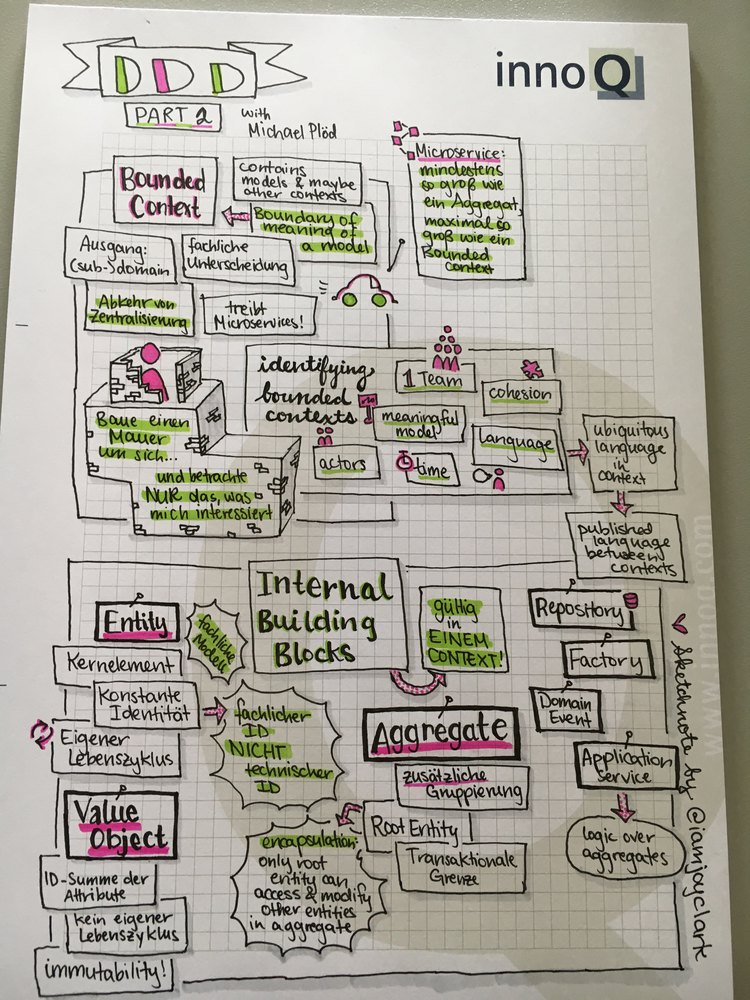 DDD
innoQ
PART 2
with
Michael Plöd
Microservice:
mindestens
so groß wie
ein Aggregat,
maximal so
groß wie ein
Bounded
context
Bounded
Context
contains
models & maybe
other contexts
Boundary of
meaning of
a model
Ausgang:
(sub-)domain
fachliche
Unterscheidung
Abkehr von
Zentralisierung
treibt
Microservices!
identifying
bounded
contexts
1 Team
cohesion
meaningful
model
language
actors
time
ubiquitous
language
in
context
published
language
between
contexts
Baue einen
Mauer
um sich...
und betrachte
NUR das, was
mich interessiert
Internal
Building
Blocks
gültig
in
EINEM
CONTEXT!
Entity
fachliche
Modell
Kernelement
Konstante
Identität
Eigener
Lebenszyklus
fachlicher
ID
NICHT
technischer
ID
Value
Object
ID-Summe der
Attribute
kein eigener
Lebenszyklus
immutability!
Aggregate
zusätzliche
Gruppierung
Root Entity
Transaktionale
Grenze
encapsulation:
only root
entity can
access & modify
other entities
in aggregate
Repository
Factory
Domain
Event
Application
Service
logic over
aggregates
Sketchnote by @iamjoyclark
www.innoq.com